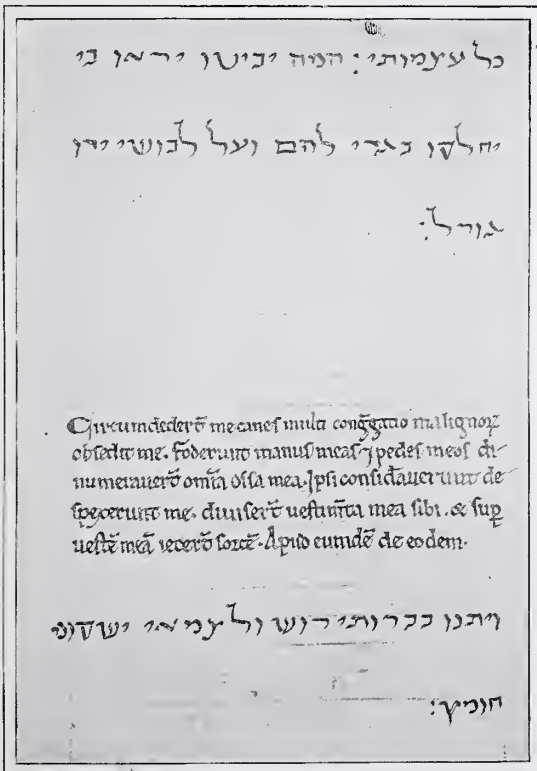 כל עצמותי: המה יביטו יראו בי
יחלקו בגדי להם ועל לבושי ידו
גורל:
Circumdederūt me canes multi cong̃gatio malignoꝝ
obsedit me. foderunt manus meas ⁊ pedes meos di-
numerauerūt om̄ia ossa mea. Ipsi consid̃auerunt de
spexerunt me. diuiserūt uestim̄ta mea sibi. & sup̱
uestē meā iecerūt sortē. Apud eumdē de eodem.
ויתנו בברותי רוש ולצמאי ישקוני
חומץ: